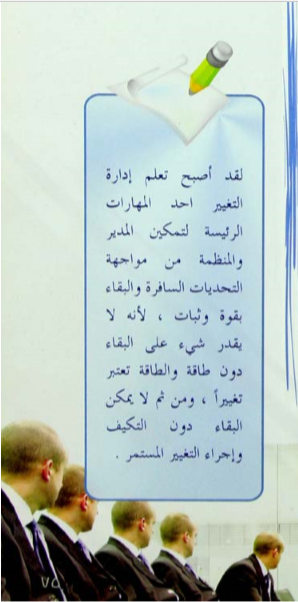 لقد أصبح تعلم إدارة
التغيير احد المهارات
الرئيسة لتمكين المدير
والمنظمة من مواجهة
التحديات السافرة والبقاء
بقوة وثبات ، لأنه لا
يقدر شيء على البقاء
دون طاقة والطاقة تعتبر
تغييراً ، ومن ثم لا يمكن
البقاء دون التكيف
وإجراء التغيير المستمر .
٧٥